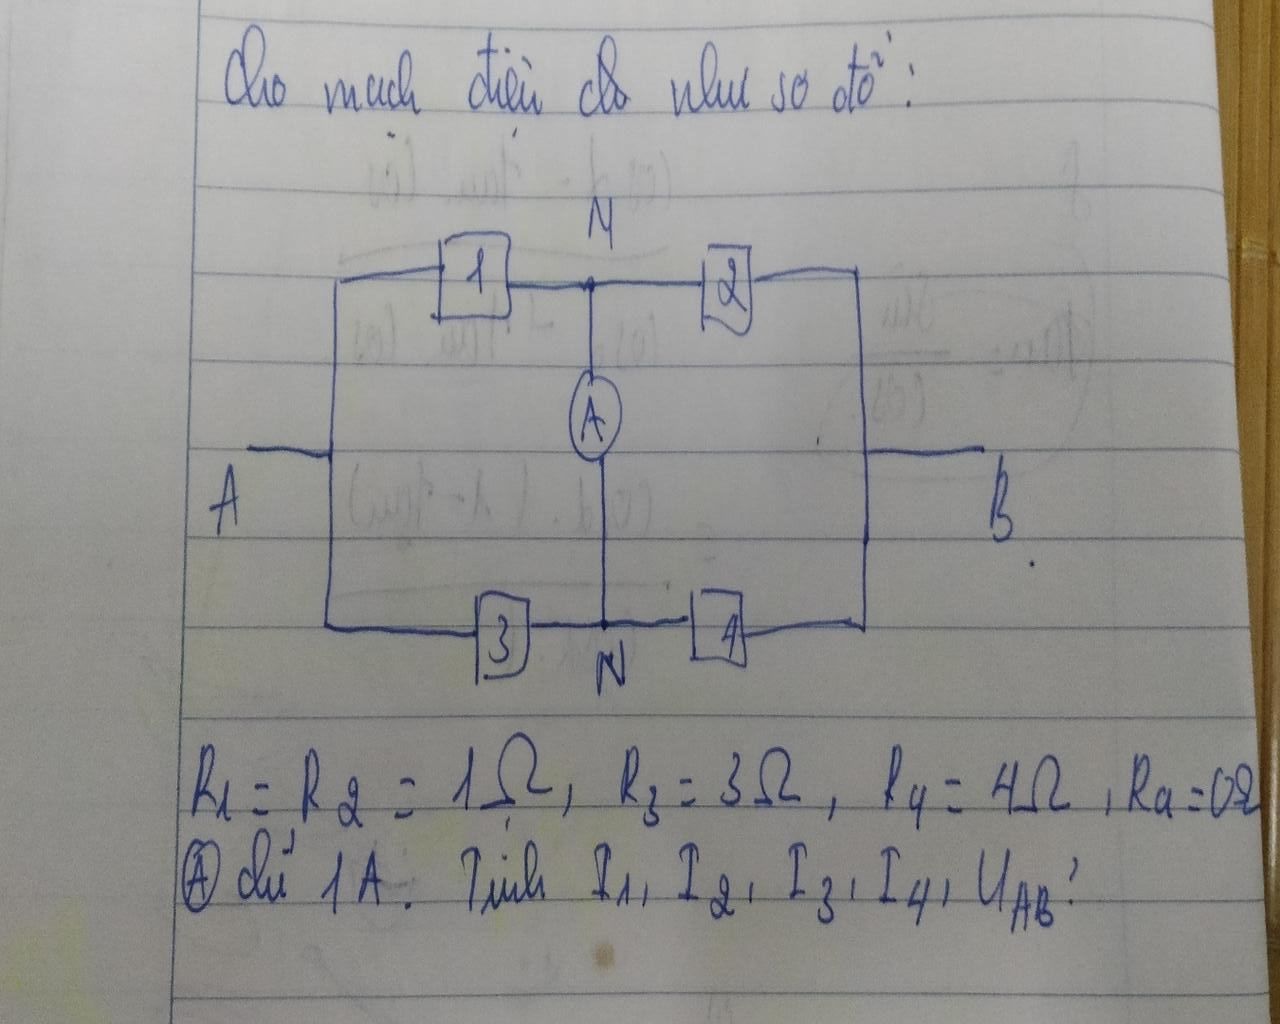 Cho mạch điện cho như sơ đồ:
M
1 2
A
A B
3 4
N
R1 = R2 = 1Ω, R3 = 3Ω, R4 = 4Ω, Ra = 0Ω
Ⓐ chỉ 1A. Tính I1, I2, I3, I4, UAB?